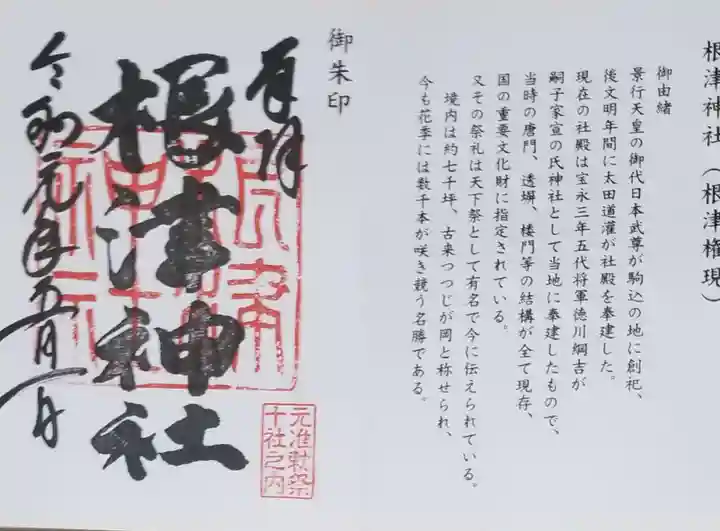 根津神社（根津権現）
御由緒
景行天皇の御代日本武尊が駒込の地に創祀、
後文明年間に太田道灌が社殿を奉建した。
現在の社殿は宝永三年五代将軍徳川綱吉が
嗣子家宣の氏神社として当地に奉建したもので、
当時の唐門、透塀、楼門等の結構が全て現存、
国の重要文化財に指定されている。
又その祭礼は天下祭として有名で今に伝えられている。
境内は約七千坪、古来つつじが岡と称せられ、
今も花季には数千本が咲き競う名勝である。
御朱印
奉拝
根津神社
令和元年五月一日
根津神社
元准勅祭
十社之内